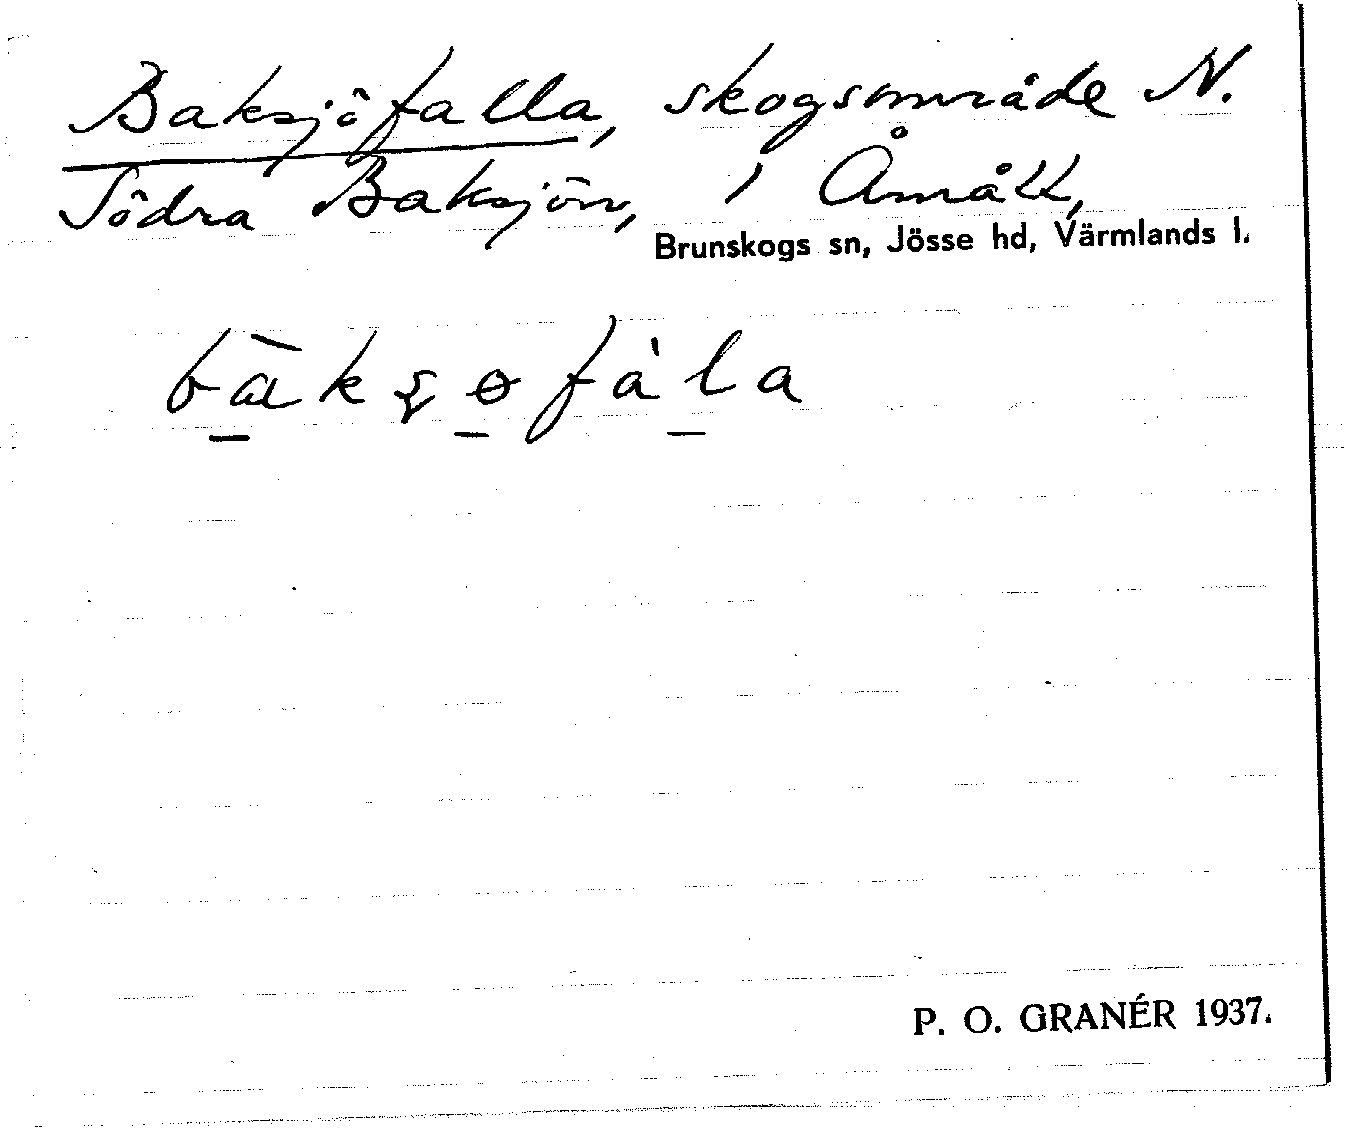 Baksjöfalla, skogsområde N.
Södra Baksjön, i Åmått,
Brunskogs sn, Jösse hd, Värmlands l.
P. O. GRANÉR 1937.